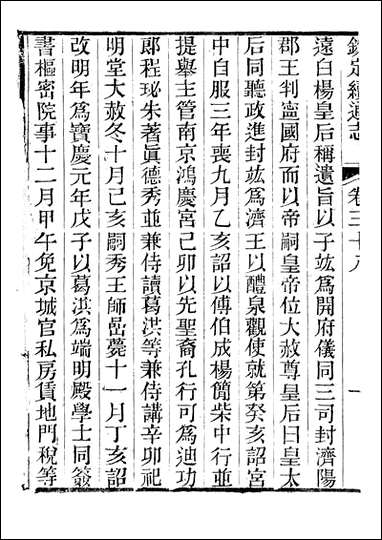 欽定續通志　卷三十八　一
遠白楊皇后稱遺旨以子竑爲開府儀同三司封濟陽
郡王判寧國府而以帝嗣皇帝位大赦尊皇后曰皇太
后同聽政進封竑爲濟王以醴泉觀使就第癸亥詔宮
中自服三年喪九月乙亥詔以傅伯成楊簡柴中行並
提舉主管南京鴻慶宮己卯以先聖裔孔行可爲迪功
郎程珌朱著眞德秀並兼侍讀葛洪等兼侍講辛卯祀
明堂大赦冬十月己亥嗣秀王師嵒薨十一月丁亥詔
改明年爲寶慶元年戊子以葛洪爲端明殿學士同簽
書樞密院事十二月甲午免京城官私房賃地門稅等